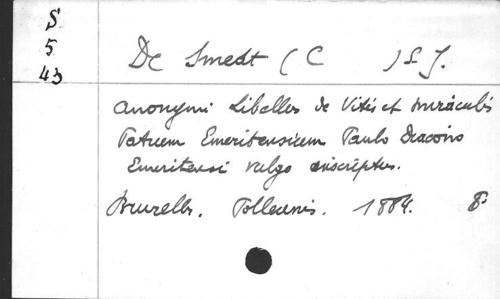 S
5
43
De Smedt (C ) S J.
Anonymi Libellus de Vitis et miraculis
Patrum Emeritensium Paulo Diacono
Emeritensi vulgo inscriptus.
Bruxelles. Polleunis. 1884. 8º